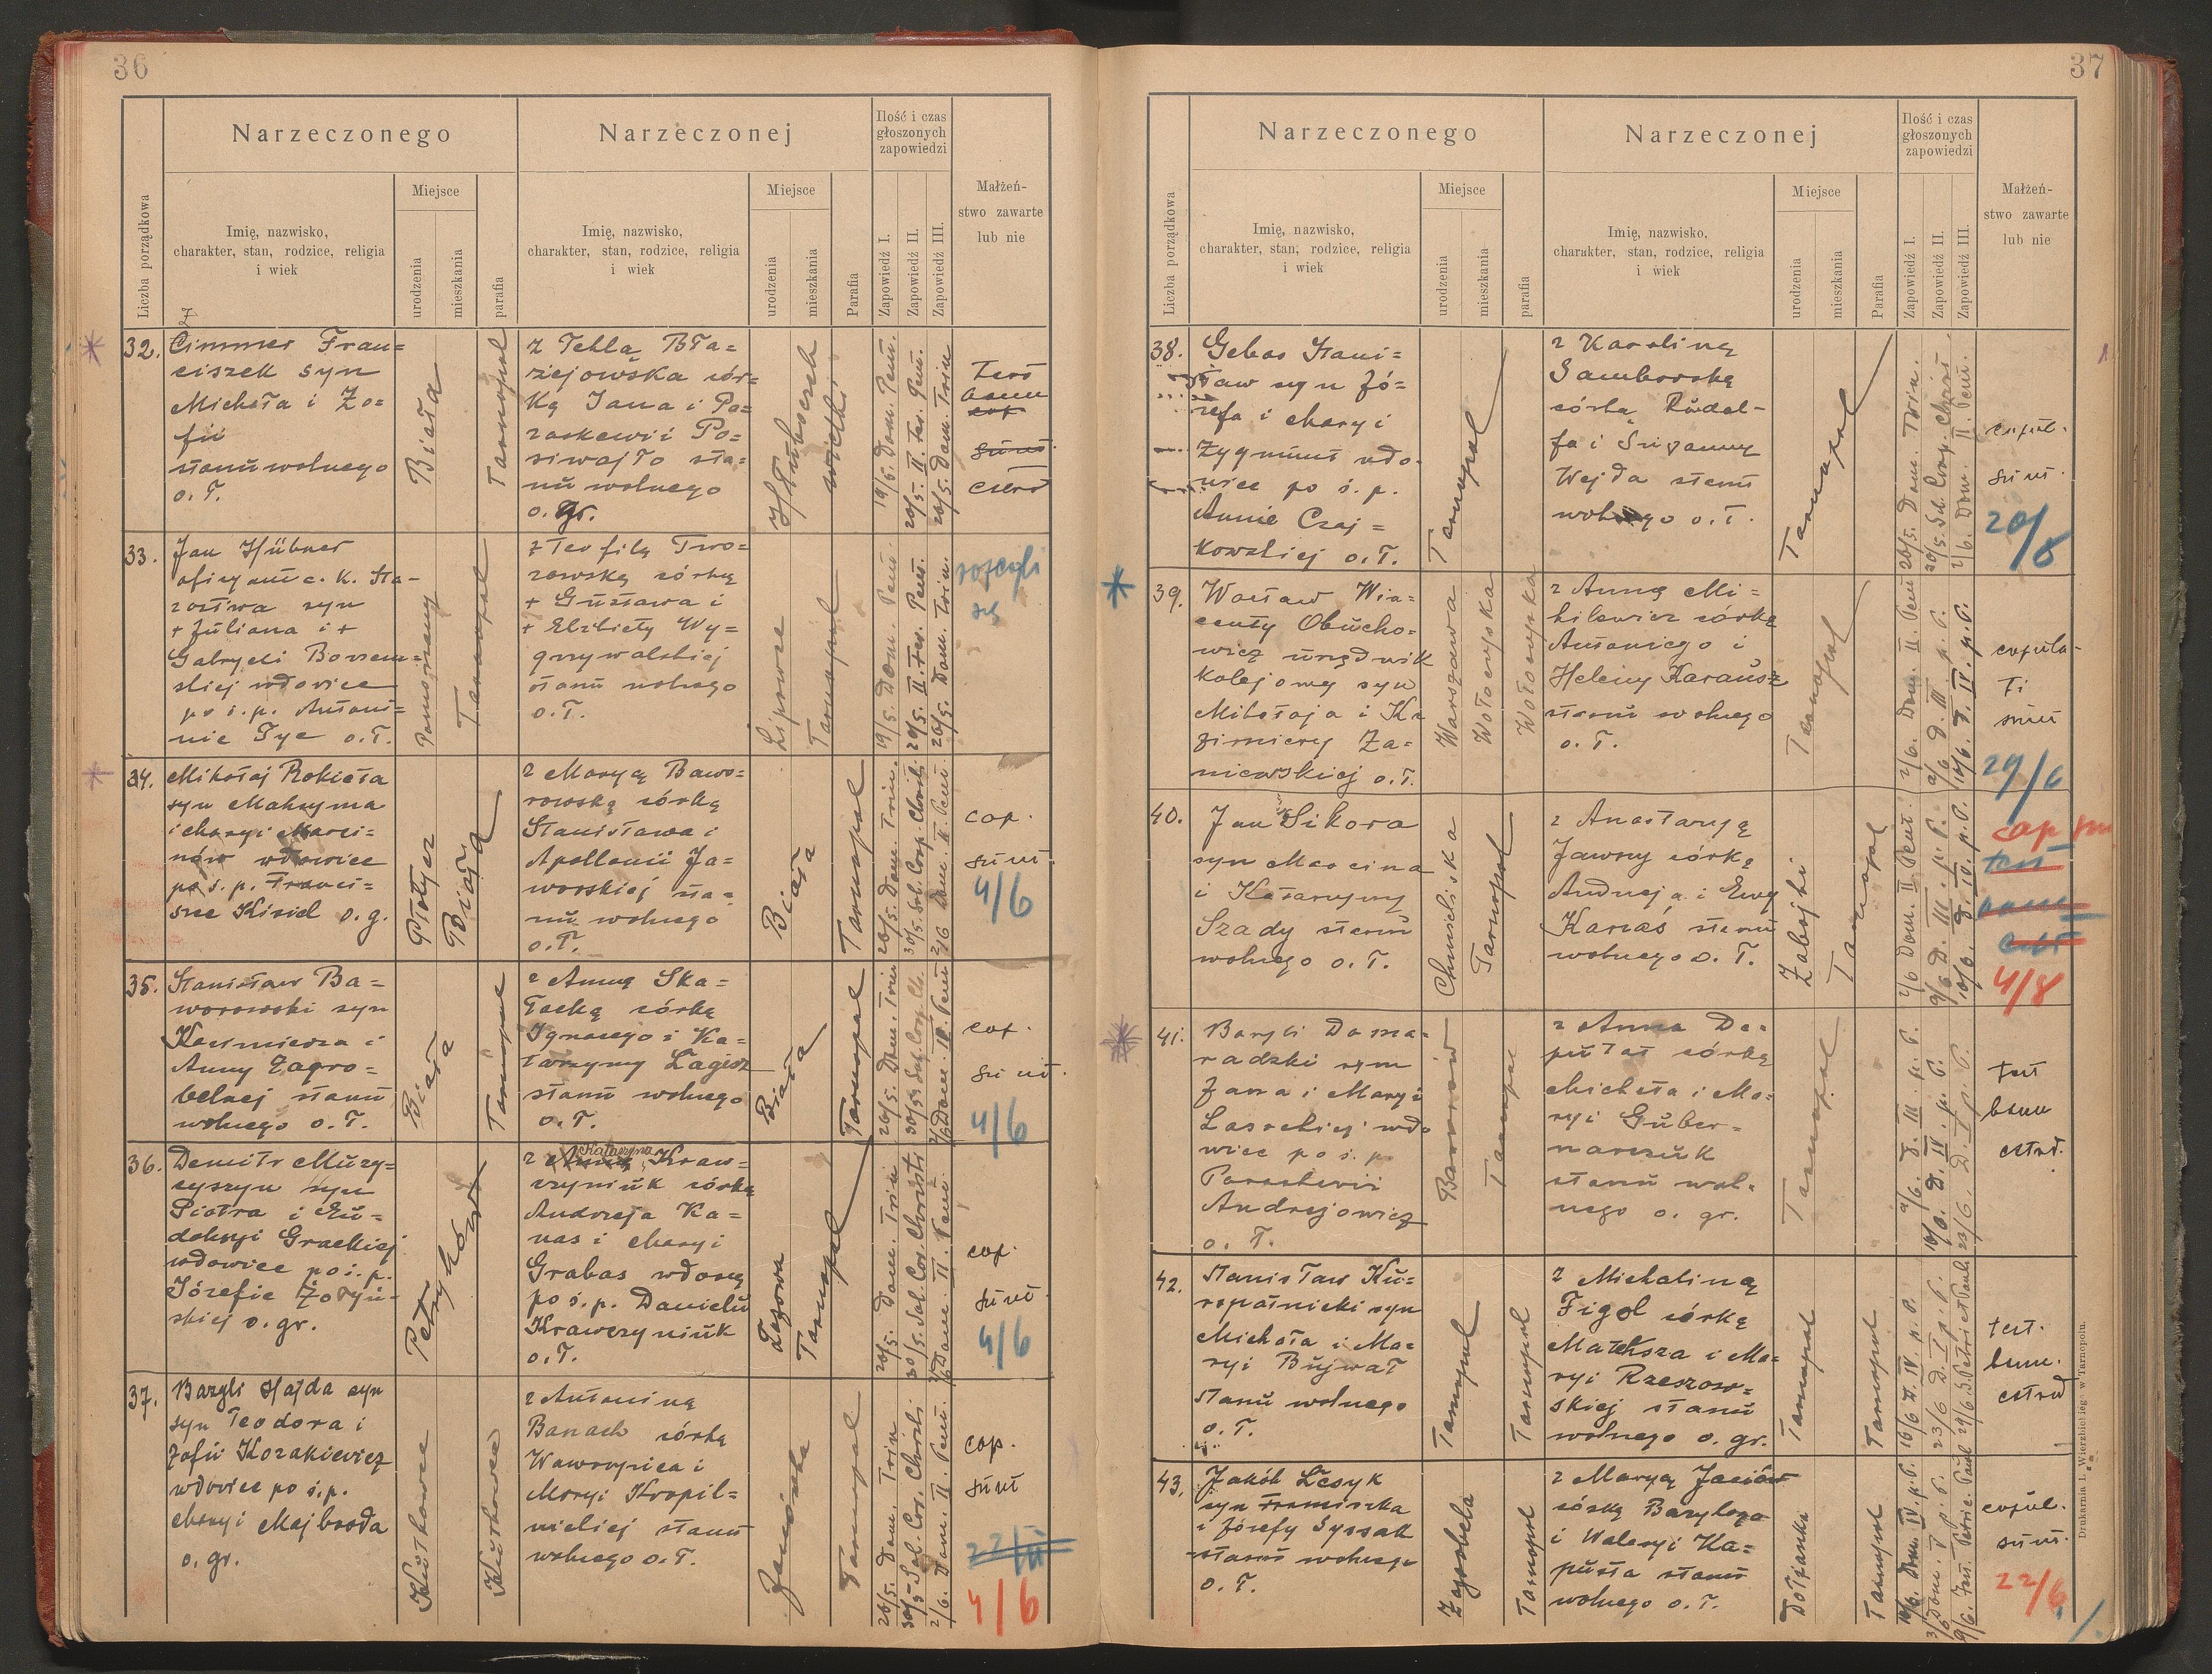 36
Narzeczonego
Narzeczonej
Ilość i czas
głoszonych
zapowiedzi
Liczba porządkowa
Imię, nazwisko,
charakter, stan, rodzice, religia
i wiek
Miejsce
urodzenia
mieszkania
parafia
Imię, nazwisko,
charakter, stan, rodzice, religia
i wiek
Miejsce
urodzenia
mieszkania
Parafia
Zapowiedź I.
Zapowiedź II.
Zapowiedź III.
Małżeń-
stwo zawarte
lub nie
32.
Cimmer Fran=
ciszek syn
Michała i Zo=
fii
stanu wolnego
o. ł.
Biała
Tarnopol
z Teklą Bła=
żejowska cór=
ką Jana i Pa=
raskewii Po=
siwajło sta=
nu wolnego
o. gr.
Hłuboczek
wielki
19/5. Dom. Pent.
20/5. II. Fer. Pent.
26/5. Dom. Trin.
33.
Jan Hübner
oficyant c. k. Sta-
rostwa syn
+ Juliana i +
Gabryeli
skiej wdowiec
po ś. p. Antoni=
nie Tyc o. ł.
Pomorzany
Tarnopol
z Teofilą Two=
rowską córką
+ Gustawa i
+ Elżbiety Wy=
grzywalskiej
stanu wolnego
o. ł.
Lipowce
Tarnopol
19/5. Dom. Pent.
20/5. II. Fer. Pent.
26/5. Dom. Trin.
rozeszli
się
34.
Mikołaj Rokieta
syn Maksyma
i Maryi Marci=
nów wdowiec
po ś. p. Franci=
szce Kisiel o. g.
Płotycz
Biała
z Maryą Bawo=
rowską córką
Stanisława i
Apollonii Ja=
worskiej sta=
nu wolnego
o. ł.
Biała
Tarnopol
26/5. Dom. Trin.
30/5. Sol. Corp. Christi
2/6 Dom. II. Pent.
cop.
sunt
4/6
35.
Stanisław Ba=
worowski syn
Kazimierza i
Anny Zagro=
belnej stanu
wolnego o. ł.
Biała
Tarnopol
z Anną Ska=
łecką córką
Ignacego i Ka=
tarzyny Łagisz
stanu wolnego
o. ł.
Biała
Tarnopol
26/5. Dom. Trin
cop.
sunt.
4/6
36.
Demitr Muzy=
czyszyn syn
Piotra i Eu=
dokyi Grackiej
wdowiec po ś. p.
Józefie Żołyń=
skiej o. gr.
Petryków
Katarzyną
z Kraw=
czyniuk córką
Andrzeja Ka=
nas i Maryi
Grabas wdową
po ś. p. Danielu
Krawczyniuk
o. ł.
Łozowa
Tarnopol
26/5. Dom. Trin
30/5. Sol. Cor. Christi
2/6 Dom. II. Pent.
cop.
sunt.
4/6
37.
Bazyli Hajda syn
syn Teodora i
Zofii Kozakiewicz
wdowiec po ś. p.
Maryi Majbroda
o. gr.
Kutkowce
Kutkowce
z Antoniną
Banach córką
Wawrzyńca i
Maryi Kropil=
nickiej stanu
wolnego o. ł.
Tarnopol
26/5. Dom. Trin
30/5 Sol. Cor. Christi
2/6. Dom. II. Pent.
cop.
sunt
4/6
37
Narzeczonego
Narzeczonej
Ilość i czas
głoszonych
zapowiedzi
Liczba porządkowa
Imię, nazwisko,
charakter, stan, rodzice, religia
i wiek
Miejsce
urodzenia
mieszkania
parafia
Imię, nazwisko,
charakter, stan, rodzice, religia
i wiek
Miejsce
urodzenia
mieszkania
Parafia
Zapowiedź I.
Zapowiedź II.
Zapowiedź III.
Małżeń-
stwo zawarte
lub nie
38.
Gebas Stani=
sław syn Jó=
zefa i Maryi
Zygmunt wdo=
wiec po ś. p.
Annie Czaj=
kowskiej o. ł.
Tarnopol
z Karoliną
Samborską
córką Rudol-
fa i Zuzanny
Wejda stanu
wolnego o. ł.
Tarnopol
26/5. Dom. Trin.
30/5. Sol. Corp. Christi
2/6. Dom. II. Pent.
copul.
sunt.
20/8
39.
Wacław Win=
centy Obucho=
wicz urzędnik
kolejowy syn
Mikołaja i Ka
zimiery Za=
niewskiej o. ł.
Warszawa
Wołoczyska
Wołoczyska
z Anną Mi=
kilewicz córką
Antoniego i
Heleny Karausz
stanu wolnego
o. ł.
Tarnopol
2/6. Dom. II. Pent
9/6 D. III p. P.
16/6. D. IV. p. P.
copula-
ti
sunt
29/6
40.
Jan Sikora
syn Marcina
i Katarzyny
Szady stanu
wolnego o. ł.
Chmieliska
Tarnopol
z Anastazyą
Jawny córką
Andrzeja i Ewy
Karaś stanu
wolnego o. ł.
Zabojki
Tarnopol
2/6 Dom. II Pent.
9/6 D. III. p. P.
16/6. D. IV. p. P.
4/8
41.
Bazyli Doma=
radzki syn
Jana i Maryi
Lasockiej wdo
wiec po ś. p.
Paraskewii
Andrejowicz
o. ł.
Tarnopol
z Anna De=
putat córką
Michała i Ma=
ryi Guber=
narczuk
stanu wol=
nego o. gr.
Tarnopol
9/6. D. III p. P.
16/6. D. IV p. P.
23/6. D. V p. P.
test
bann
extrad.
42.
Stanisław Ku=
ropatnicki syn
Michała i Ma=
ryi Bujwał
stanu wolnego
o. ł.
Tarnopol
Tarnopol
z Michaliną
Figol córką
Mateusza i Ma=
ryi Rzeszow=
skiej stanu
wolnego o. gr.
Tarnopol
Tarnopol
16/6 D. IV. p. P.
23/6 D. V p. P.
test.
bann.
extrad
43.
Jakób Łesyk
syn Franciszka
i Józefy Syssak
stanu wolnego
o. ł.
Zagrobela
Tarnopol
z Maryą Jaciów
córką Bazylego
i Waleryi Ka=
pusta stanu
wolnego o. ł.
Dołżanka
Tarnopol
copul.
sunt.
22/6
Drukarnia L. Wierzbickiego w Tarnopolu.